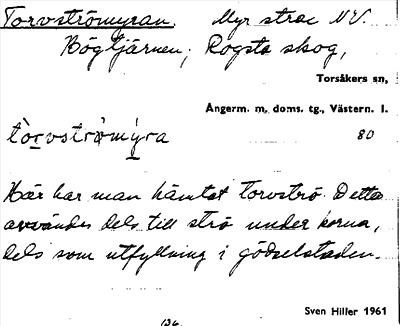 Torvströmyran. Myr strax NV.
Bögtjärnen, Rogsta skog,
Torsåkers sn,
Ångerm. m. doms. tg., Västern. l.
tòrvströ̀mýra 80
Här har man hämtat torvströ. Detta
användes dels till strö under korna,
dels som utfyllning i gödselstaden.
Sven Hiller 1961